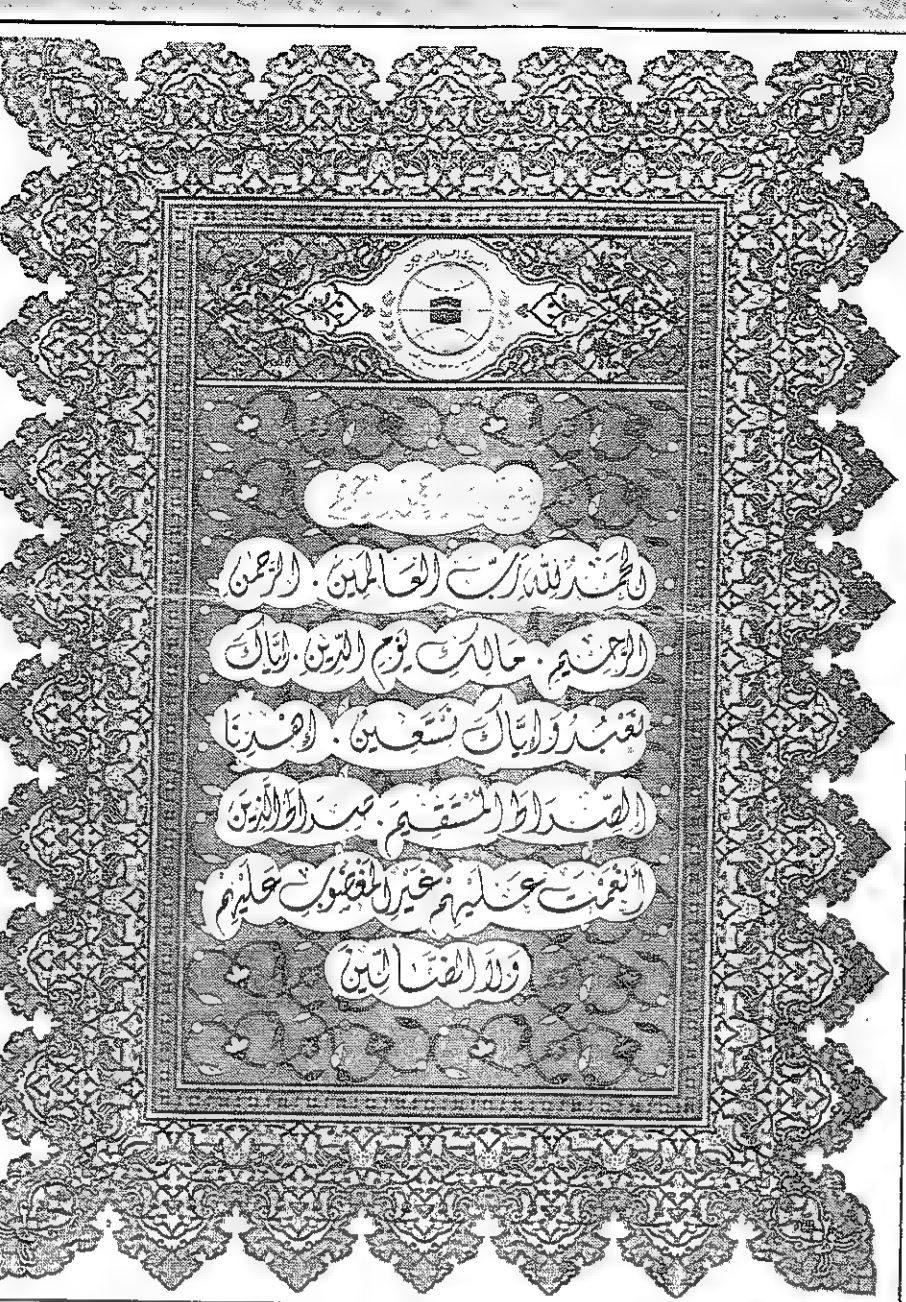 الحَمْدُ لِلّٰهِ رَبِّ العَالَمِينَ . الرَّحْمٰنِ
الرَّحِيمِ . مَالِكِ يَوْمِ الدِّينِ . إِيَّاكَ
نَعْبُدُ وَإِيَّاكَ نَسْتَعِينُ . إِهْدِنَا
الصِّرَاطَ المُسْتَقِيمَ . صِرَاطَ الَّذِينَ
أَنْعَمْتَ عَلَيْهِمْ غَيْرِ المَغْضُوبِ عَلَيْهِمْ
وَلاَ الضَّالِّينَ